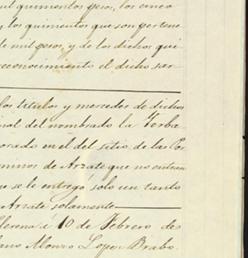 mil quinientos pesos, los cinco
y los quinientos que son pertene
te mil pesos, y de los dichos qui
reconocimiento el dicho ser
los titulos y mercedes de dichos
nal del nombrado la Yerba
orado en el del sitio de las Cor
minos de Arzate que no entran
ue se le entregó solo un tanto
Arzate solamente
llerena á 10 de Febrero de
ano Monro Lopez Brabo.